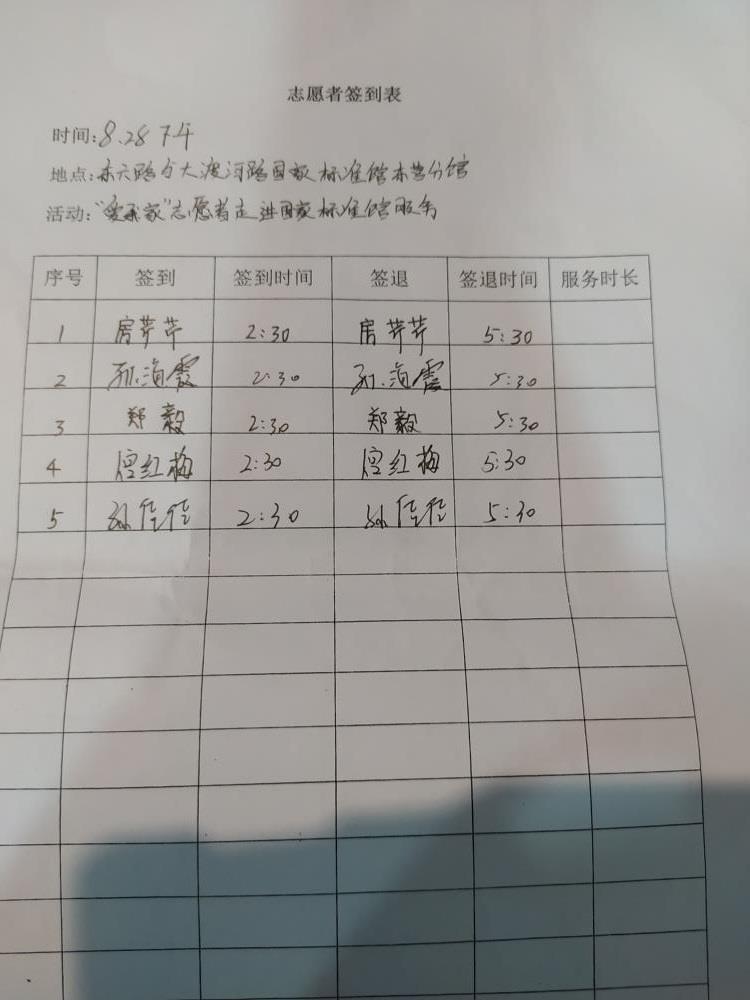 志愿者签到表
时间:8.28 下午
地点:东六路与大渡河路国家标准馆东营分馆
活动:"爱我家"志愿者走进国家标准馆服务
序号 签到 签到时间 签退 签退时间 服务时长
1 房芹芹 2:30 房芹芹 5:30
2 孙海霞 2:30 孙海霞 5:30
3 郑毅 2:30 郑毅 5:30
4 红梅 2:30 红梅 5:30
5 孙佳佳 2:30 孙佳佳 5:30